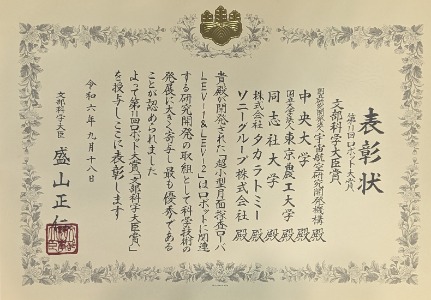 表彰状
第11回ロボット大賞
文部科学大臣賞
国立研究開発法人宇宙航空研究開発機構 殿
中央大学 殿
国立大学法人東京農工大学 殿
同志社大学 殿
株式会社タカラトミー 殿
ソニーグループ株式会社 殿
貴殿が開発された「超小型月面探査ローバ
LEV-1&LEV-2」はロボットに関連
する研究開発の取組として科学技術の
発展に大きく寄与し最も優秀である
ことが認められました
よって第11回ロボット大賞「文部科学大臣賞」
を授与しここに表彰します
令和六年九月十八日
文部科学大臣 盛山正仁